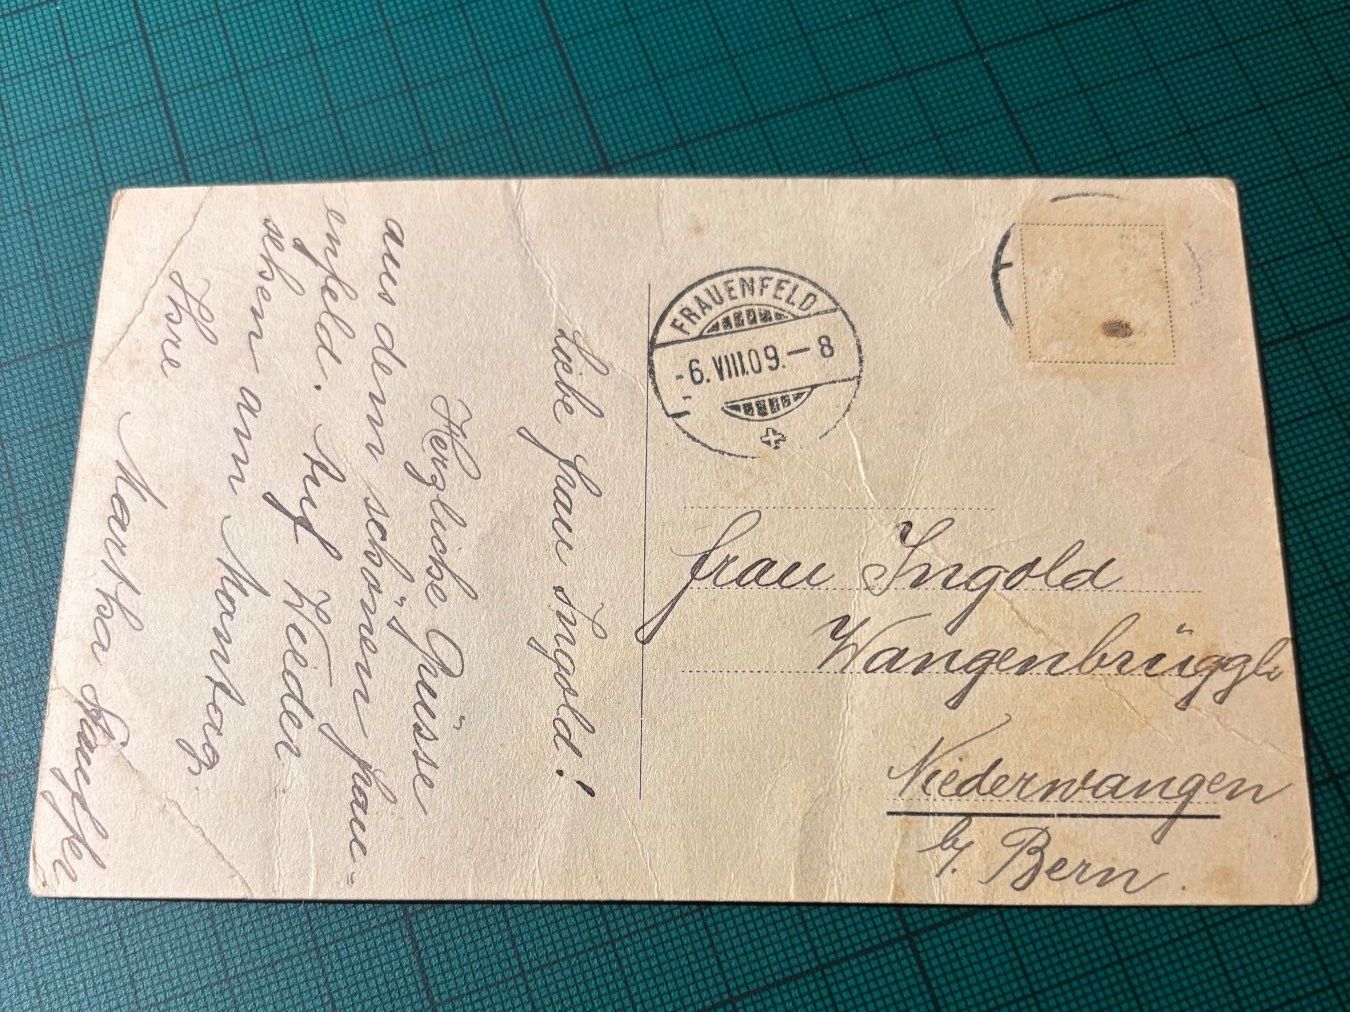 Liebe Frau Ingold!
Herzliche Grüsse
aus dem schönen Frau=
enfeld. Auf Wieder
sehen am Montag.
Ihre
Martha Stauffer.
FRAUENFELD
-6.VIII.09.-8
Frau Ingold
Wangenbrüggli
Niederwangen
b/ Bern.